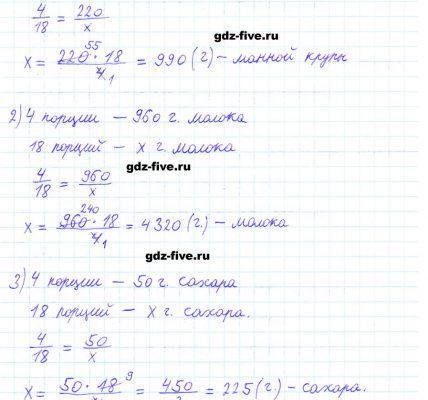 4/18 = 220/x
gdz-five.ru
x = 220 · 18 / 4 = 990 (г) – манной крупы
55
1
gdz-five.ru
2) 4 порции – 960 г. молока
18 порций – x г. молока
gdz-five.ru
4/18 = 960/x
240
x = 960 · 18 / 4 = 4320 (г.) – молока
1
gdz-five.ru
3) 4 порции – 50 г. сахара
18 порций – x г. сахара.
4/18 = 50/x
gdz-five.ru
x = 50 · 18 = 450 = 225 (г.) – сахара.
9